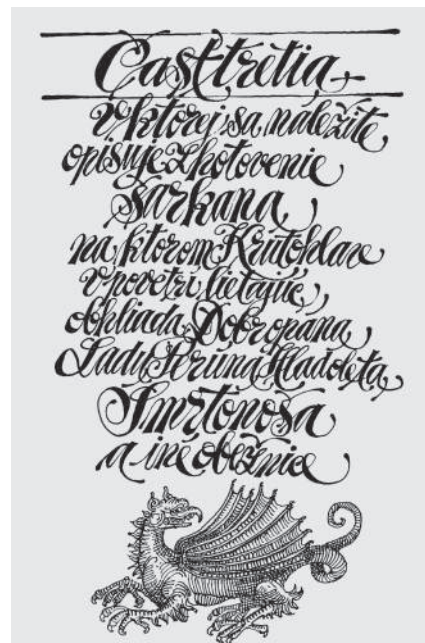 Časť tretia
v ktorej sa náležite
opisuje zhotovenie
šarkana,
na ktorom Krutohlav
v povetrí lietajúc,
obhliada Dobropána,
Ladu, Perúna, Hladoleta,
Smrtonosa
a iné obežnice